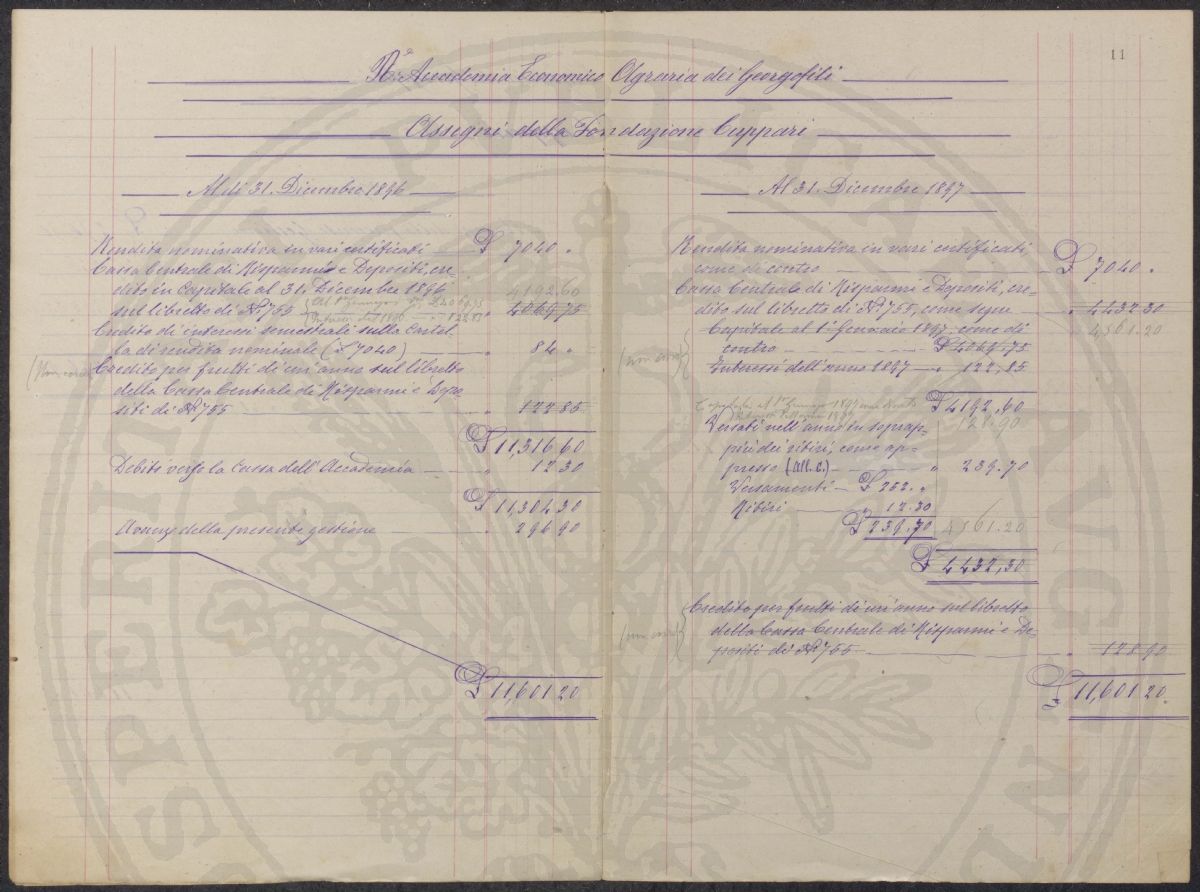 11
R.ª Accademia Economico Agraria dei Georgofili
Assegni della Fondazione Cuppari
Al dì 31. Dicembre 1896
Rendita nominativa in vari certificati £ 7040 "
Cassa Centrale di Risparmi e Depositi, cre-
dito in Capitale al 31. Dicembre 1896 4192.60
sul libretto di Nº 755 " 4069.75
Credito di interessi semestrali sulla Cartel-
la di rendita nominale (£ 7040) " 84 "
Credito per frutti di un'anno sul libretto
della Cassa Centrale di Risparmi e Depo-
siti di Nº 755 " 122 85
£ 11,316.60
Debiti verso la Cassa dell'Accademia " 12.30
£ 11304.30
Avanzo della presente gestione " 296 90
£ 11,601.20
Al 31. Dicembre 1897
Rendita nominativa in vari certificati,
come di contro £ 7040 "
Cassa Centrale di Risparmi e Depositi, cre-
dito sul libretto di Nº 755, come segue " 4432.30
Capitale al 1º Gennaio 1897 come di 4561.20
contro £ 4069.75
Interessi dell'anno 1897 " 122,85
Capitale al 1º Gennaio 1897 come
£ 4192,60
128.90
Versati nell'anno in soprap-
più dei ritiri, come ap-
presso (All. C.) " 239.70
Versamenti £ 252. "
Ritiri " 12.30
£ 239.70 4561.20
£ 4432,30
Credito per frutti di un'anno sul libretto
della Cassa Centrale di Risparmi e De-
positi di Nº 755 " 128.90
£ 11,601.20
PVBLICA